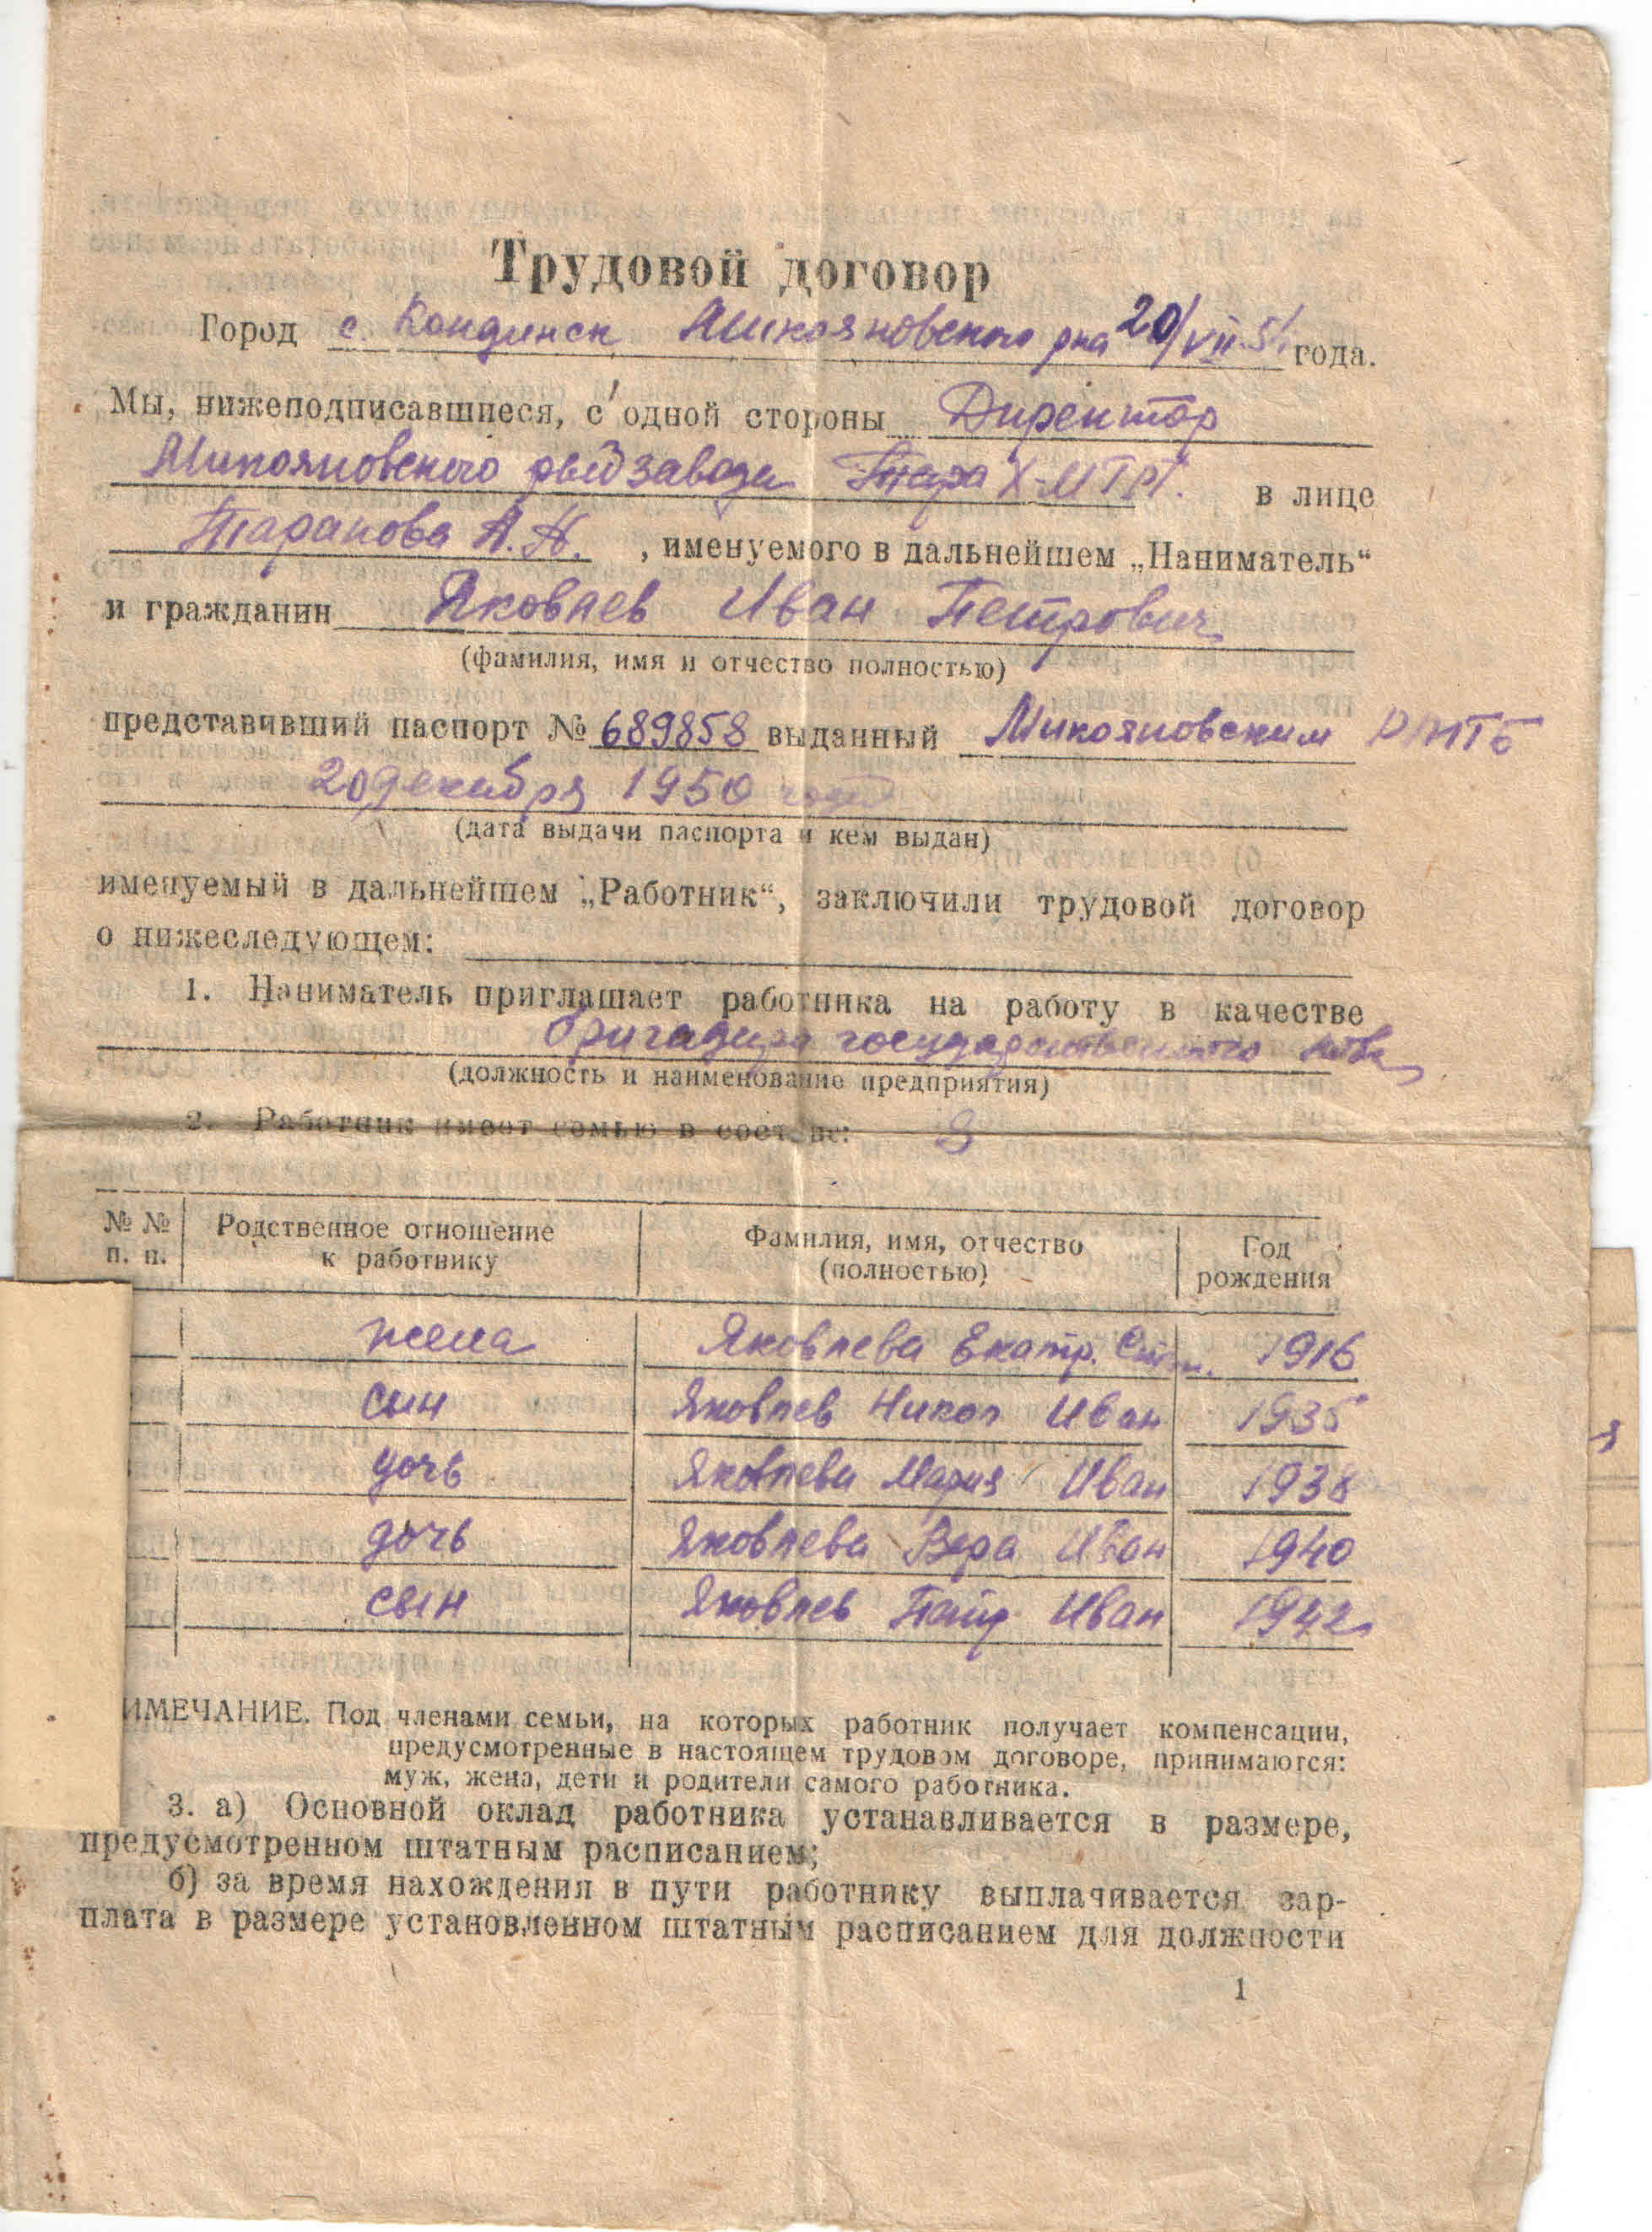 Трудовой договор
Город с. Кондинск Микояновского рна 20/VII 51 года.
Мы, нижеподписавшиеся, с одной стороны Директор
Микояновского рыбзавода Х-МГРТ. в лице
Таранова А.Н., именуемого в дальнейшем „Наниматель“
и гражданин Яковлев Иван Петрович
(фамилия, имя и отчество полностью)
представивший паспорт № 689858 выданный Микояновским
20 декабря 1950 года
(дата выдачи паспорта и кем выдан)
именуемый в дальнейшем „Работник“, заключили трудовой договор
о нижеследующем:
1. Наниматель приглашает работника на работу в качестве
бригадира государственного лова
(должность и наименование предприятия)
2. Работник имеет семью в составе:
№ № Родственное отношение Фамилия, имя, отчество Год
п. п. к работнику (полностью) рождения
жена Яковлева Екатр. 1916
сын Яковлев Никол Иван 1935
дочь Яковлева Мария Иван 1938
дочь Яковлева Вера Иван 1940
сын Яковлев Петр Иван 1942
ИМЕЧАНИЕ. Под членами семьи, на которых работник получает компенсации,
предусмотренные в настоящем трудовом договоре, принимаются:
муж, жена, дети и родители самого работника.
3. а) Основной оклад работника устанавливается в размере,
предусмотренном штатным расписанием;
б) за время нахождения в пути работнику выплачивается зар-
плата в размере установленном штатным расписанием для должности
1